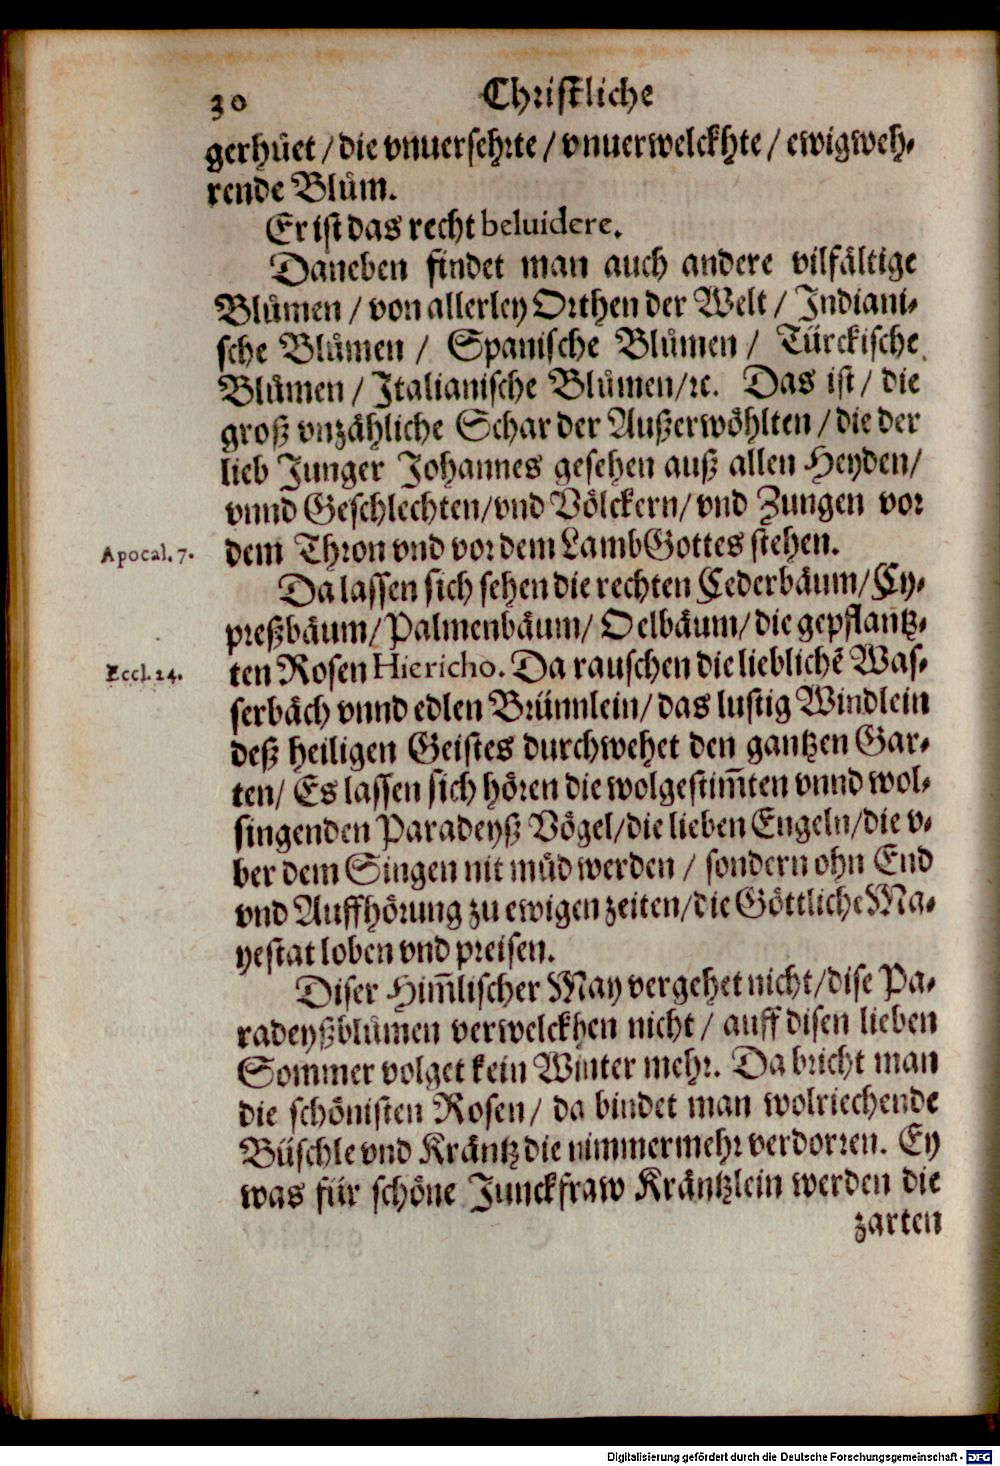 30 Christliche
gerhüet / die vnuersehrte / vnuerwelckhte / ewigweh-
rende Blům.
Er ist das recht beluidere.
Daneben findet man auch andere vilfältige
Blůmen / von allerley Orthen der Welt / Indiani-
sche Blůmen / Spanische Blůmen / Türckische
Blůmen / Italianische Blůmen/ꝛc. Das ist / die
groß vnzähliche Schar der Außerwöhlten / die der
lieb Junger Johannes gesehen auß allen Heyden/
vnnd Geschlechten/vnd Völckern/vnd Zungen vor
Apocal. 7. dem Thron vnd vor dem Lamb Gottes stehen.
Da lassen sich sehen die rechten Cederbäum/Cy-
preßbäum/Palmenbäum/ Oelbäum/die gepflantz-
Eccl. 24. ten Rosen Hiericho. Da rauschen die lieblichē Was-
serbäch vnnd edlen Brünnlein/das lustig Windlein
deß heiligen Geistes durchwehet den gantzen Gar-
ten/ Es lassen sich hören die wolgestim̃ten vnnd wol-
singenden Paradeyß Vögel/die lieben Engeln/die v-
ber dem Singen nit müd werden / sondern ohn End
vnd Auffhörung zu ewigen zeiten/die Göttliche Ma-
yestat loben vnd preisen.
Diser Him̃lischer May vergehet nicht/dise Pa-
radeyßblůmen verwelckhen nicht / auff disen lieben
Sommer volget kein Winter mehr. Da bricht man
die schönisten Rosen/ da bindet man wolriechende
Büschle vnd Kräntz die nimmermehr verdorren. Ey
was für schöne Junckfraw Kräntzlein werden die
zarten
Digitalisierung gefördert durch die Deutsche Forschungsgemeinschaft - DFG